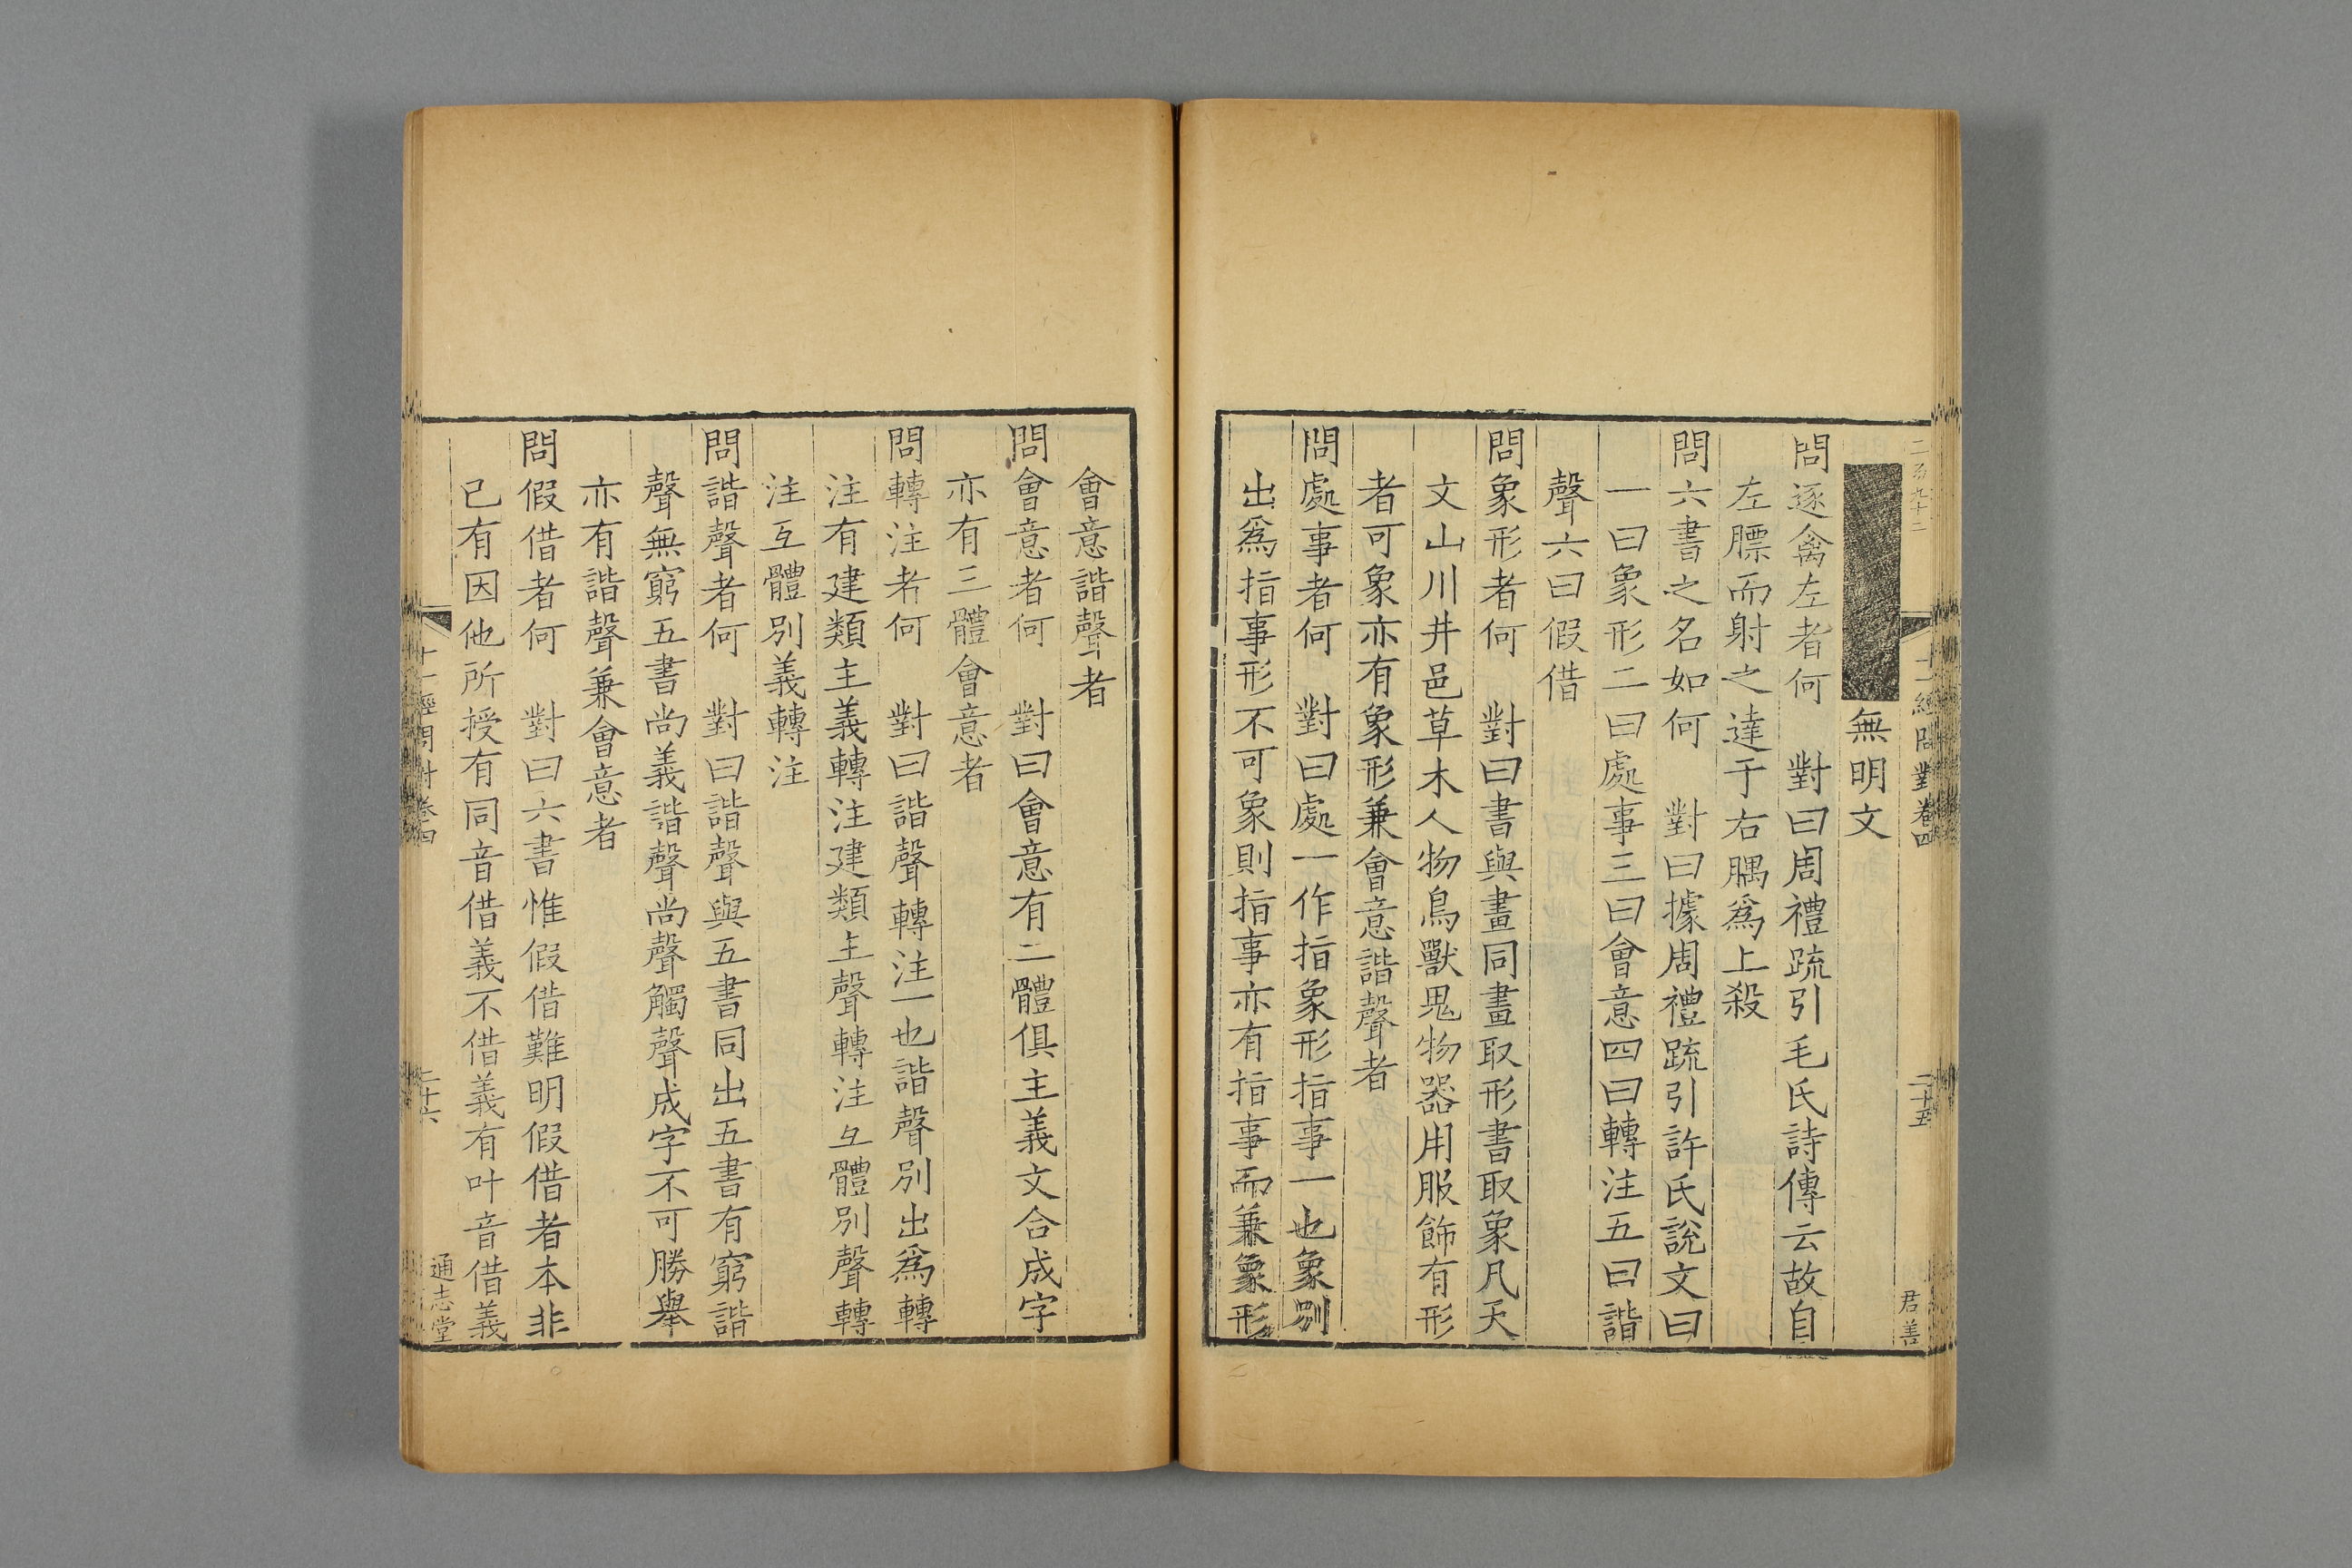 十一經問對卷四
二十五
君善
無明文
問逐禽左者何　對曰周禮疏引毛氏詩傳云故自
左膘而射之達于右腢爲上殺
問六書之名如何　對曰據周禮疏引許氏說文曰
一曰象形二曰處事三曰會意四曰轉注五曰諧
聲六曰假借
問象形者何　對曰書與畫同畫取形書取象凡天
文山川井邑草木人物鳥獸鬼物器用服飾有形
者可象亦有象形兼會意諧聲者
問處事者何　對曰處一作指象形指事一也象別
出爲指事形不可象則指事亦有指事而兼象形
會意諧聲者
問會意者何　對曰會意有二體俱主義文合成字
亦有三體會意者
問轉注者何　對曰諧聲轉注一也諧聲別出爲轉
注有建類主義轉注建類主聲轉注互體別聲轉
注互體別義轉注
問諧聲者何　對曰諧聲與五書同出五書有窮諧
聲無窮五書尚義諧聲尚聲觸聲成字不可勝舉
亦有諧聲兼會意者
問假借者何　對曰六書惟假借難明假借者本非
己有因他所授有同音借義不借義有叶音借義
十一經問對卷四
二十六
通志堂